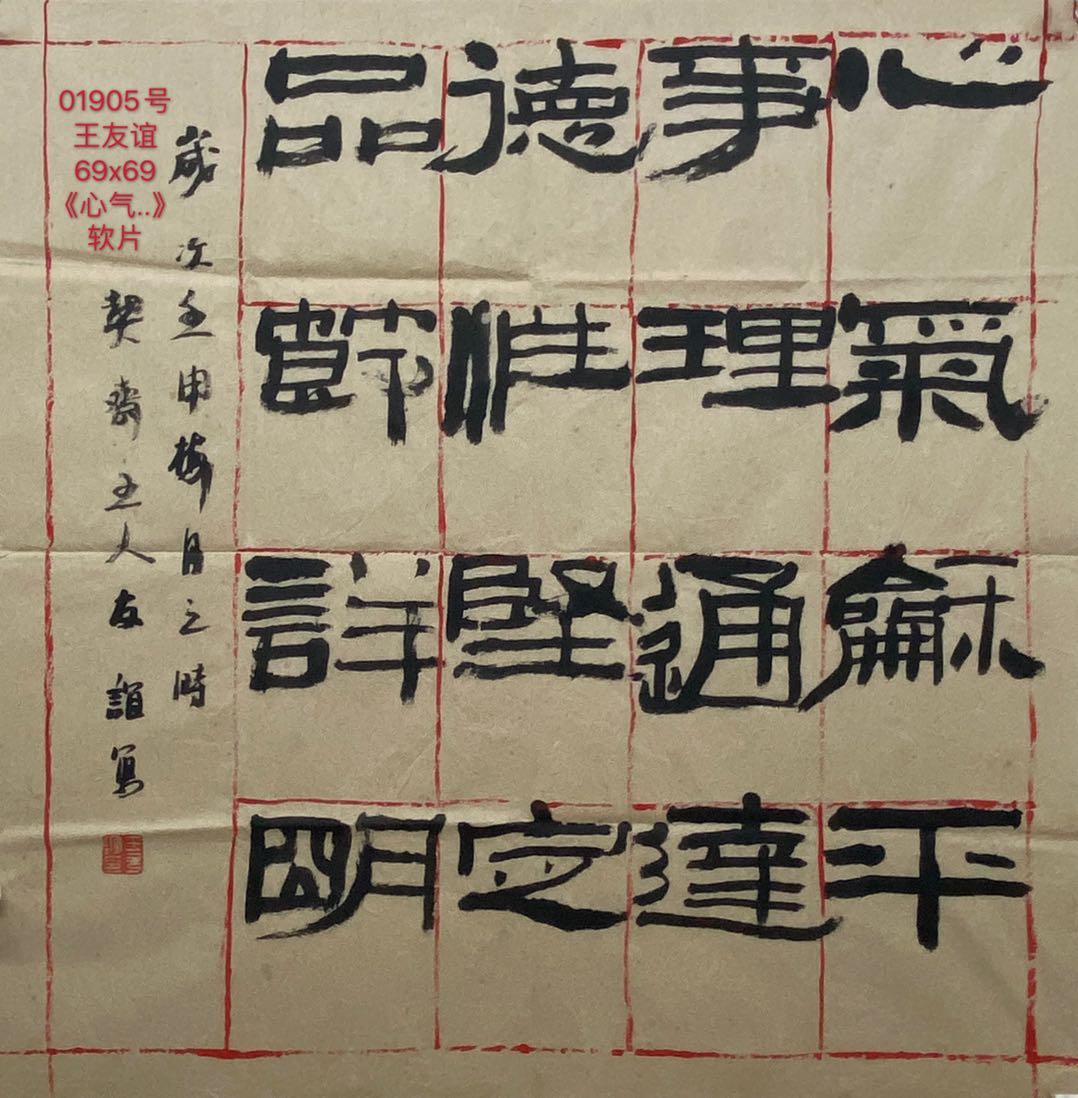 心氣龢平
事理通達
德性堅定
品節詳明
歲次壬申梅月之時
契齋主人友誼寫
01905号
王友谊
69x69
《心气..》
软片